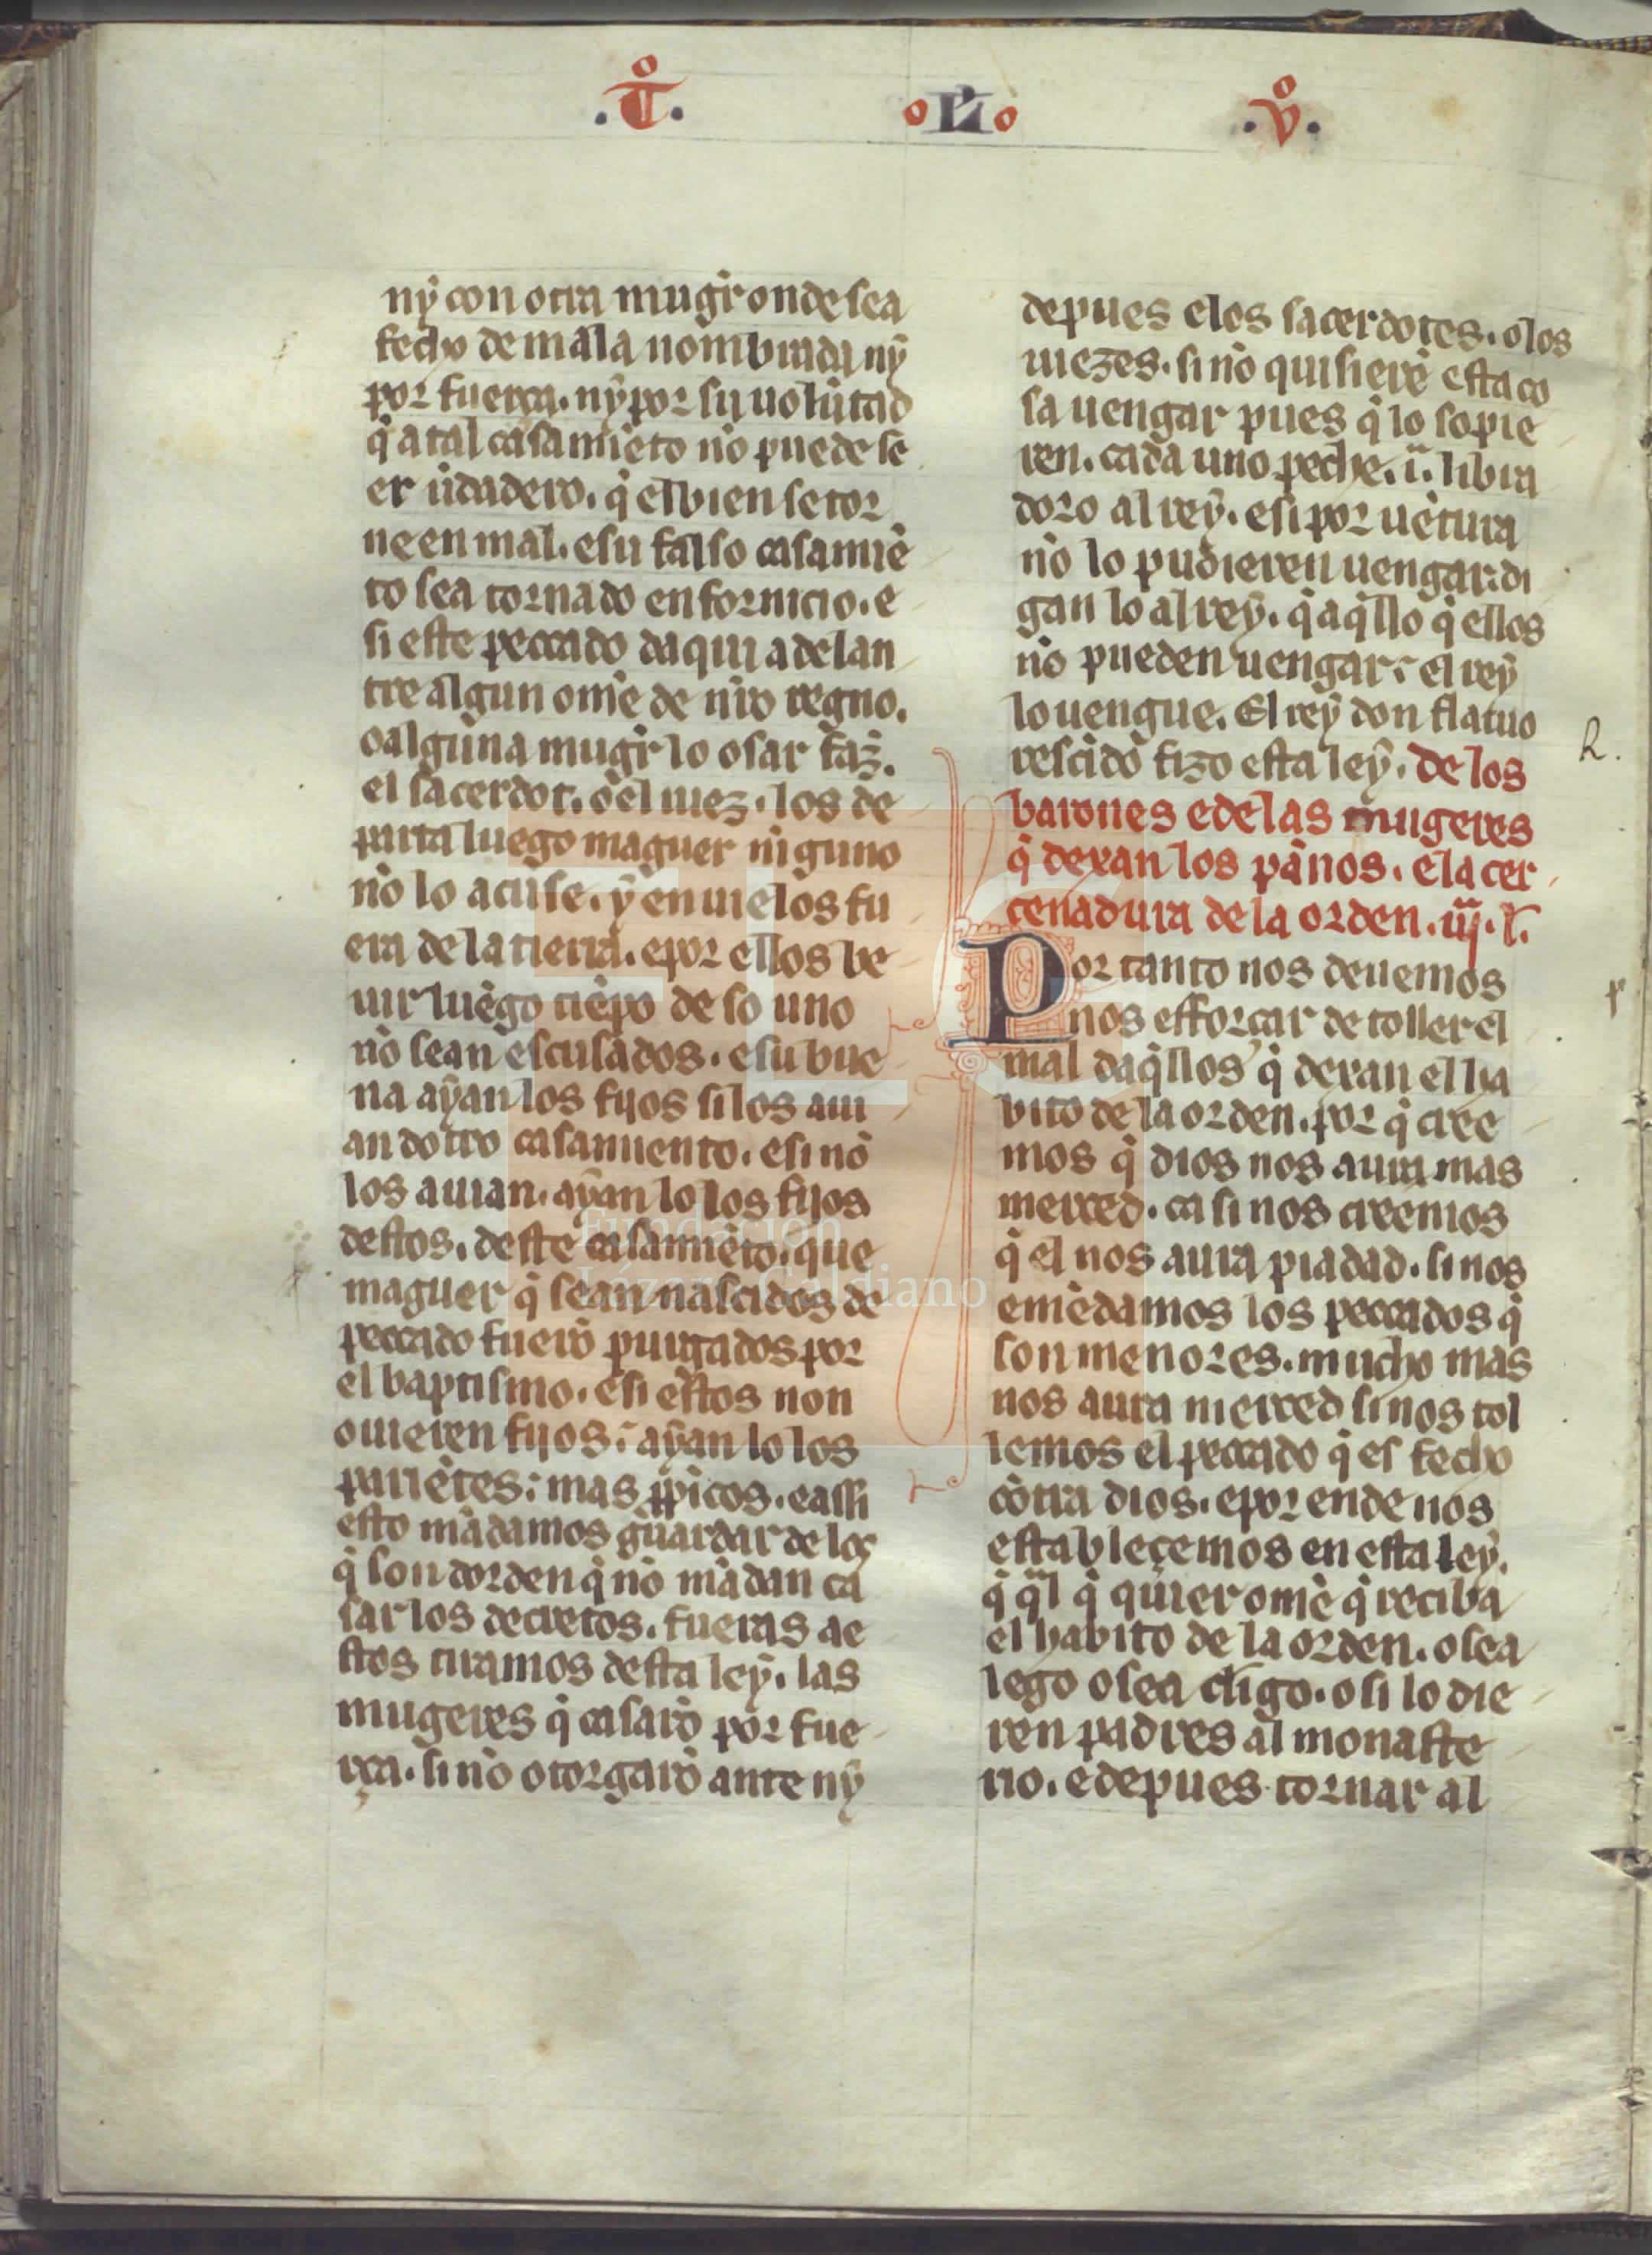 .T̊.
o L̊o o
.v̊.
nȳ con otra mugr̄ onde sea
fecho de mala nombrada nȳ
por fuerça. nȳ por su uolūtad
q̄ atal casamiēto nō puede se
er ūdadero. q̄ el bien se tor
ne en mal. e su falso casamiē
to sea tornado en fornicio. e
si este peccado daqui adelan
tre algun om̄e de nr̄o regno.
o alguna mugr̄ lo osar faz̄.
el sacerdot. o el iuez. los de
parta luego maguer ni guno
nō lo acuse. ȳ enuielos fu
era de la tierra. e por ellos be
uir luego tiēpo de so uno
nō sean escusados. e su bue
na ayan los fijos si los aui
an dotro casamiento. e si nō
los auian. ayan lo los fijos
destos. deste casamiēto. que
maguer q̄ sean nascidos de
peccado fuerō purgados por
el baptismo. e si estos non
ouieren fijos: ayan lo los
pariētes: mas ꝓpīcos. e assi
esto mādamos guardar de los
q̄ son dorden q̄ nō mādan ca
sar los decretos. fueras ae
stos tiramos desta leȳ. las
mugeres q̄ casarō por fue
rça. si nō otorgarō ante nȳ
depues e los sacerdotes. o los
iuezes. si nō quisierē esta co
sa uengar pues q̄ lo sopie
ren. cada uno peche. ii. libra
doro al reȳ. e si por uētura
nō lo pudieren uengar: di
gan lo al reȳ. q̄ aq̄llo q̄ ellos
nō pueden uengar: el reȳ
lo uengue. El reȳ don flauio
rescidō fizo esta leȳ. de los
barones e de las mugeres
q̄ dexan los pānos. e la cer
cenadura de la orden. iij. l̄.
Por tanto nos deuemos
nos efforçar de toller el
mal daq̄llos q̄ dexan el ha
bito de la orden. por q̄ cree
mos q̄ dios nos aura mas
merced. ca si nos creemos
q̄ el nos aura piadad. si nos
emēdamos los peccados q̄
son menores. mucho mas
nos aura merced si nos tol
lemos el peccado q̄ es fecho
cōtra dios. e por ende nos
estableçemos en esta leȳ.
q̄ q̄l q̄ quier omē q̄ reciba
el habito de la orden. o sea
lego o sea cl̄igo. o si lo die
ren padres al monaste
rio. e depues tornar al
R.
Fundación
Lázaro Galdiano